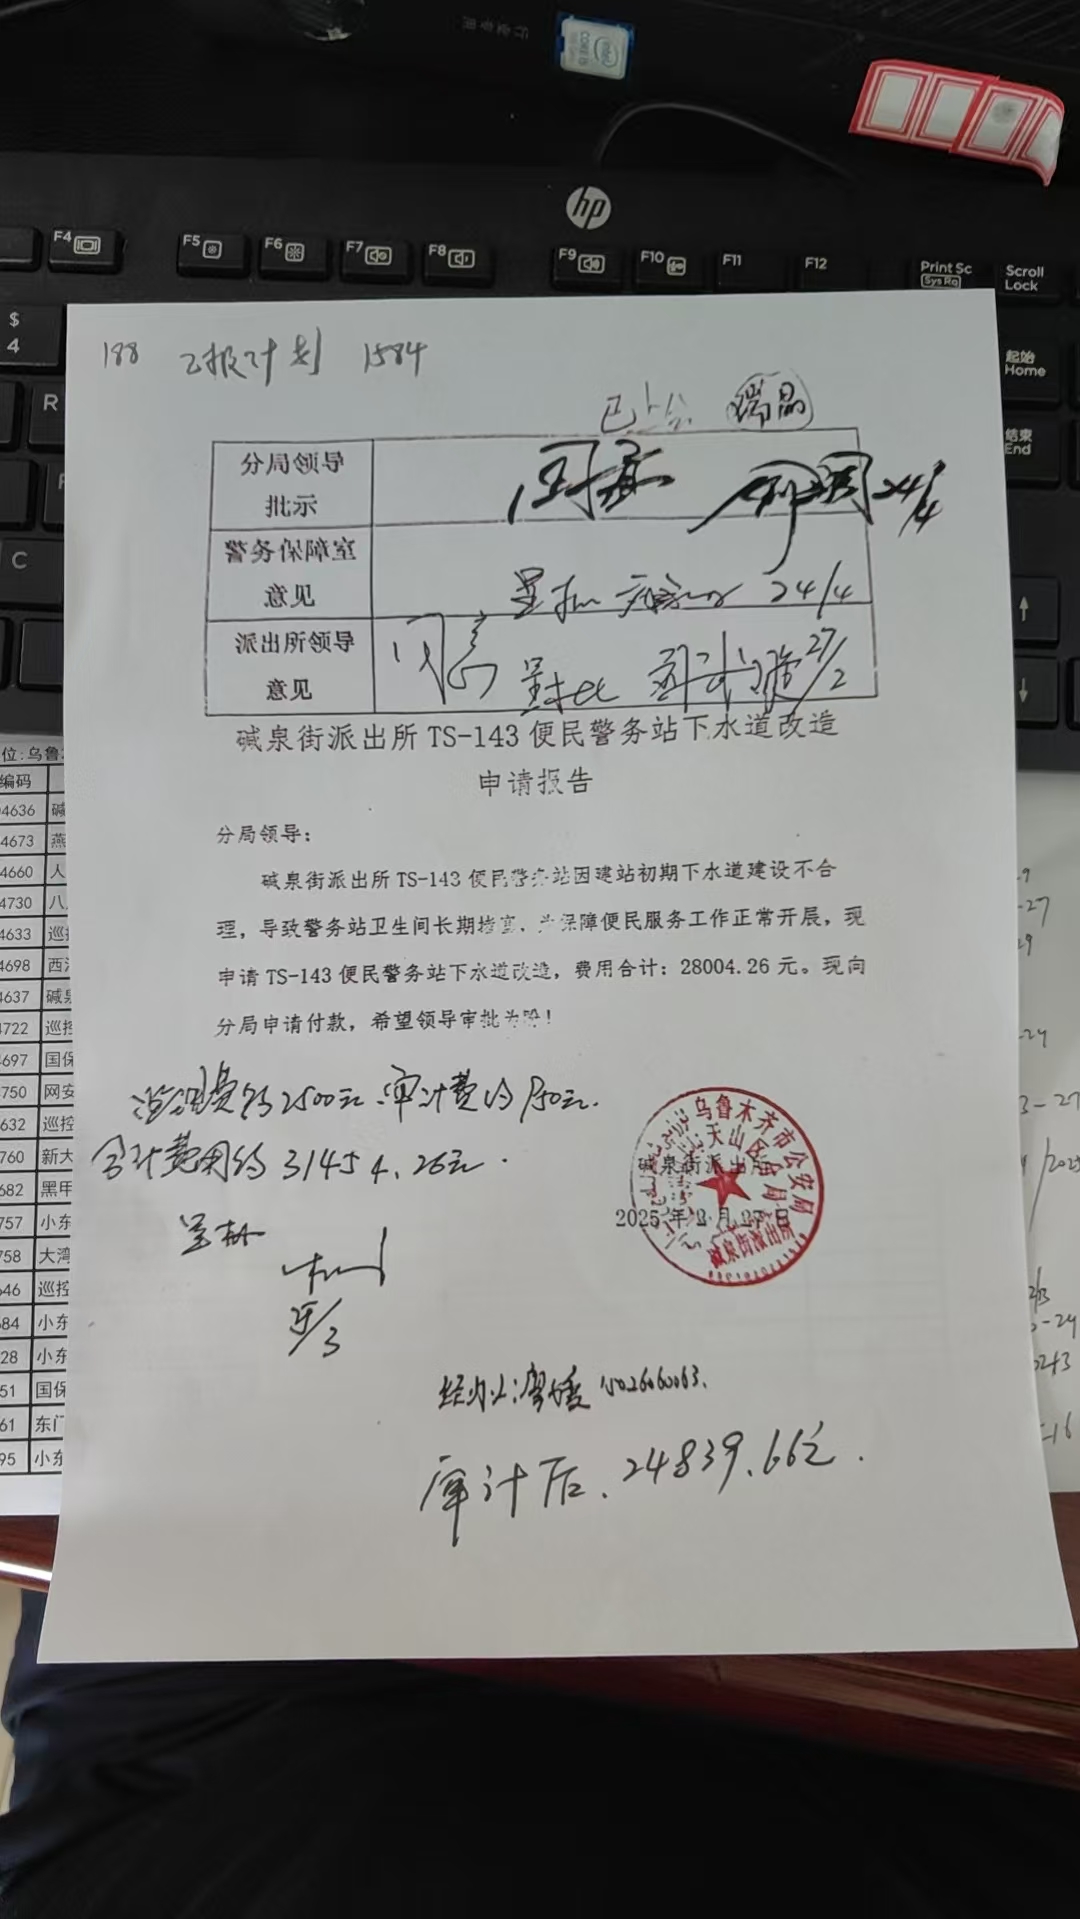 intel
CORE i5
hp
F4
F5
F6
F7
F8
F9
F10
F11
F12
Print Sc
Sys Rq
Scroll
Lock
$
4
R
F
C
起始
Home
结束
End
188 已报计划 1584
已上会
分局领导
批示
24/4
警务保障室
意见
呈批 24/4
派出所领导
意见
同意 呈批 27/2
碱泉街派出所 TS-143 便民警务站下水道改造
申请报告
分局领导：
碱泉街派出所 TS-143 便民警务站因建站初期下水道建设不合
理，导致警务站卫生间长期堵塞，为保障便民服务工作正常开展，现
申请 TS-143 便民警务站下水道改造，费用合计：28004.26 元。现向
分局申请付款，希望领导审批为盼！
监理费约2500元.审计费约950元.
合计费用约31454.26元.
碱泉街派出所
2025 年 2 月 27 日
乌鲁木齐市公安局
天山区分局
呈批
经办人:廖媛
审计后.24839.66元.
位:乌鲁
编码
4636 碱
4673 燕
4660 人
4730 八
4633 巡
4698 西
4637 碱泉
4722 巡控
4697 国保
750 网安
632 巡控
760 新大
682 黑甲
757 小东
758 大湾
646 巡控
684 小东
28 小东
51 国保
61 东门
95 小东